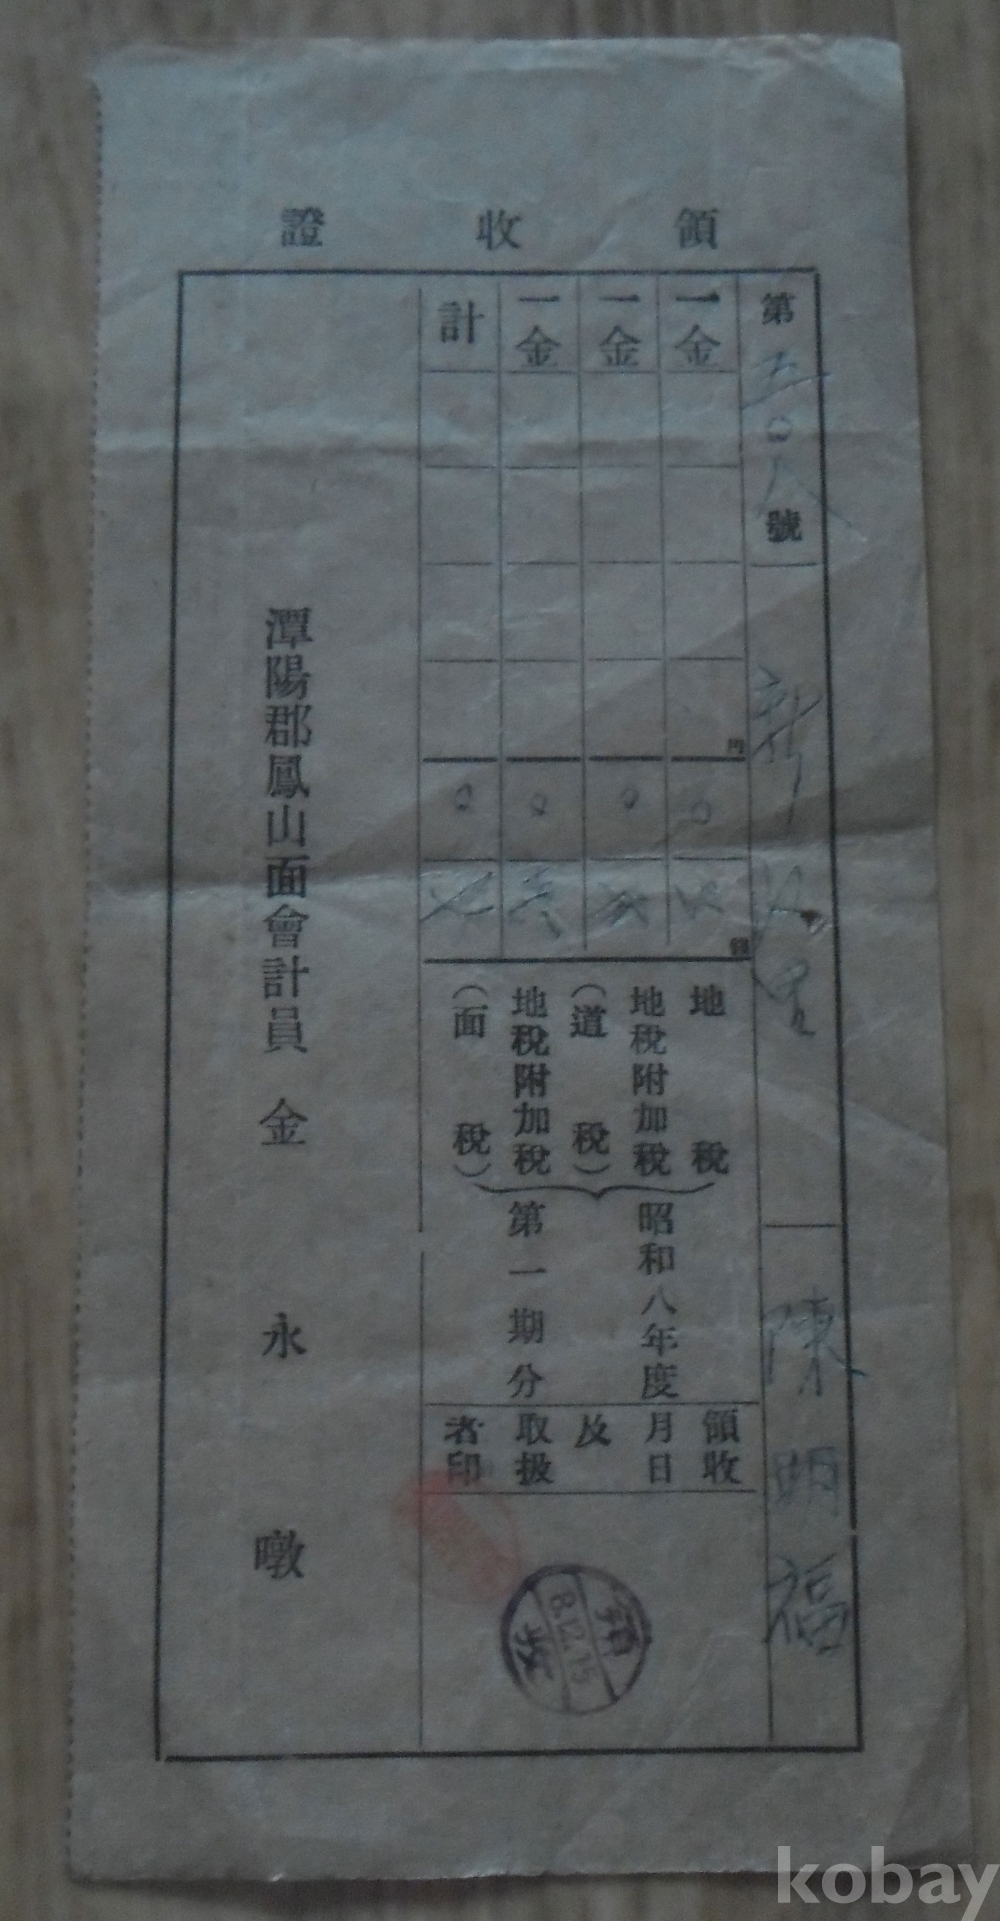 領收證
第五〇八號
陳明福
一金
円
〇
錢
地稅
一金
〇
地稅附加稅
(道稅)
一金
〇
地稅附加稅
(面稅)
計
〇
昭和八年度
第一期分
領收
月日
及
取扱
者印
領收
8.12.15
潭陽郡鳳山面會計員 金永暾
kobay